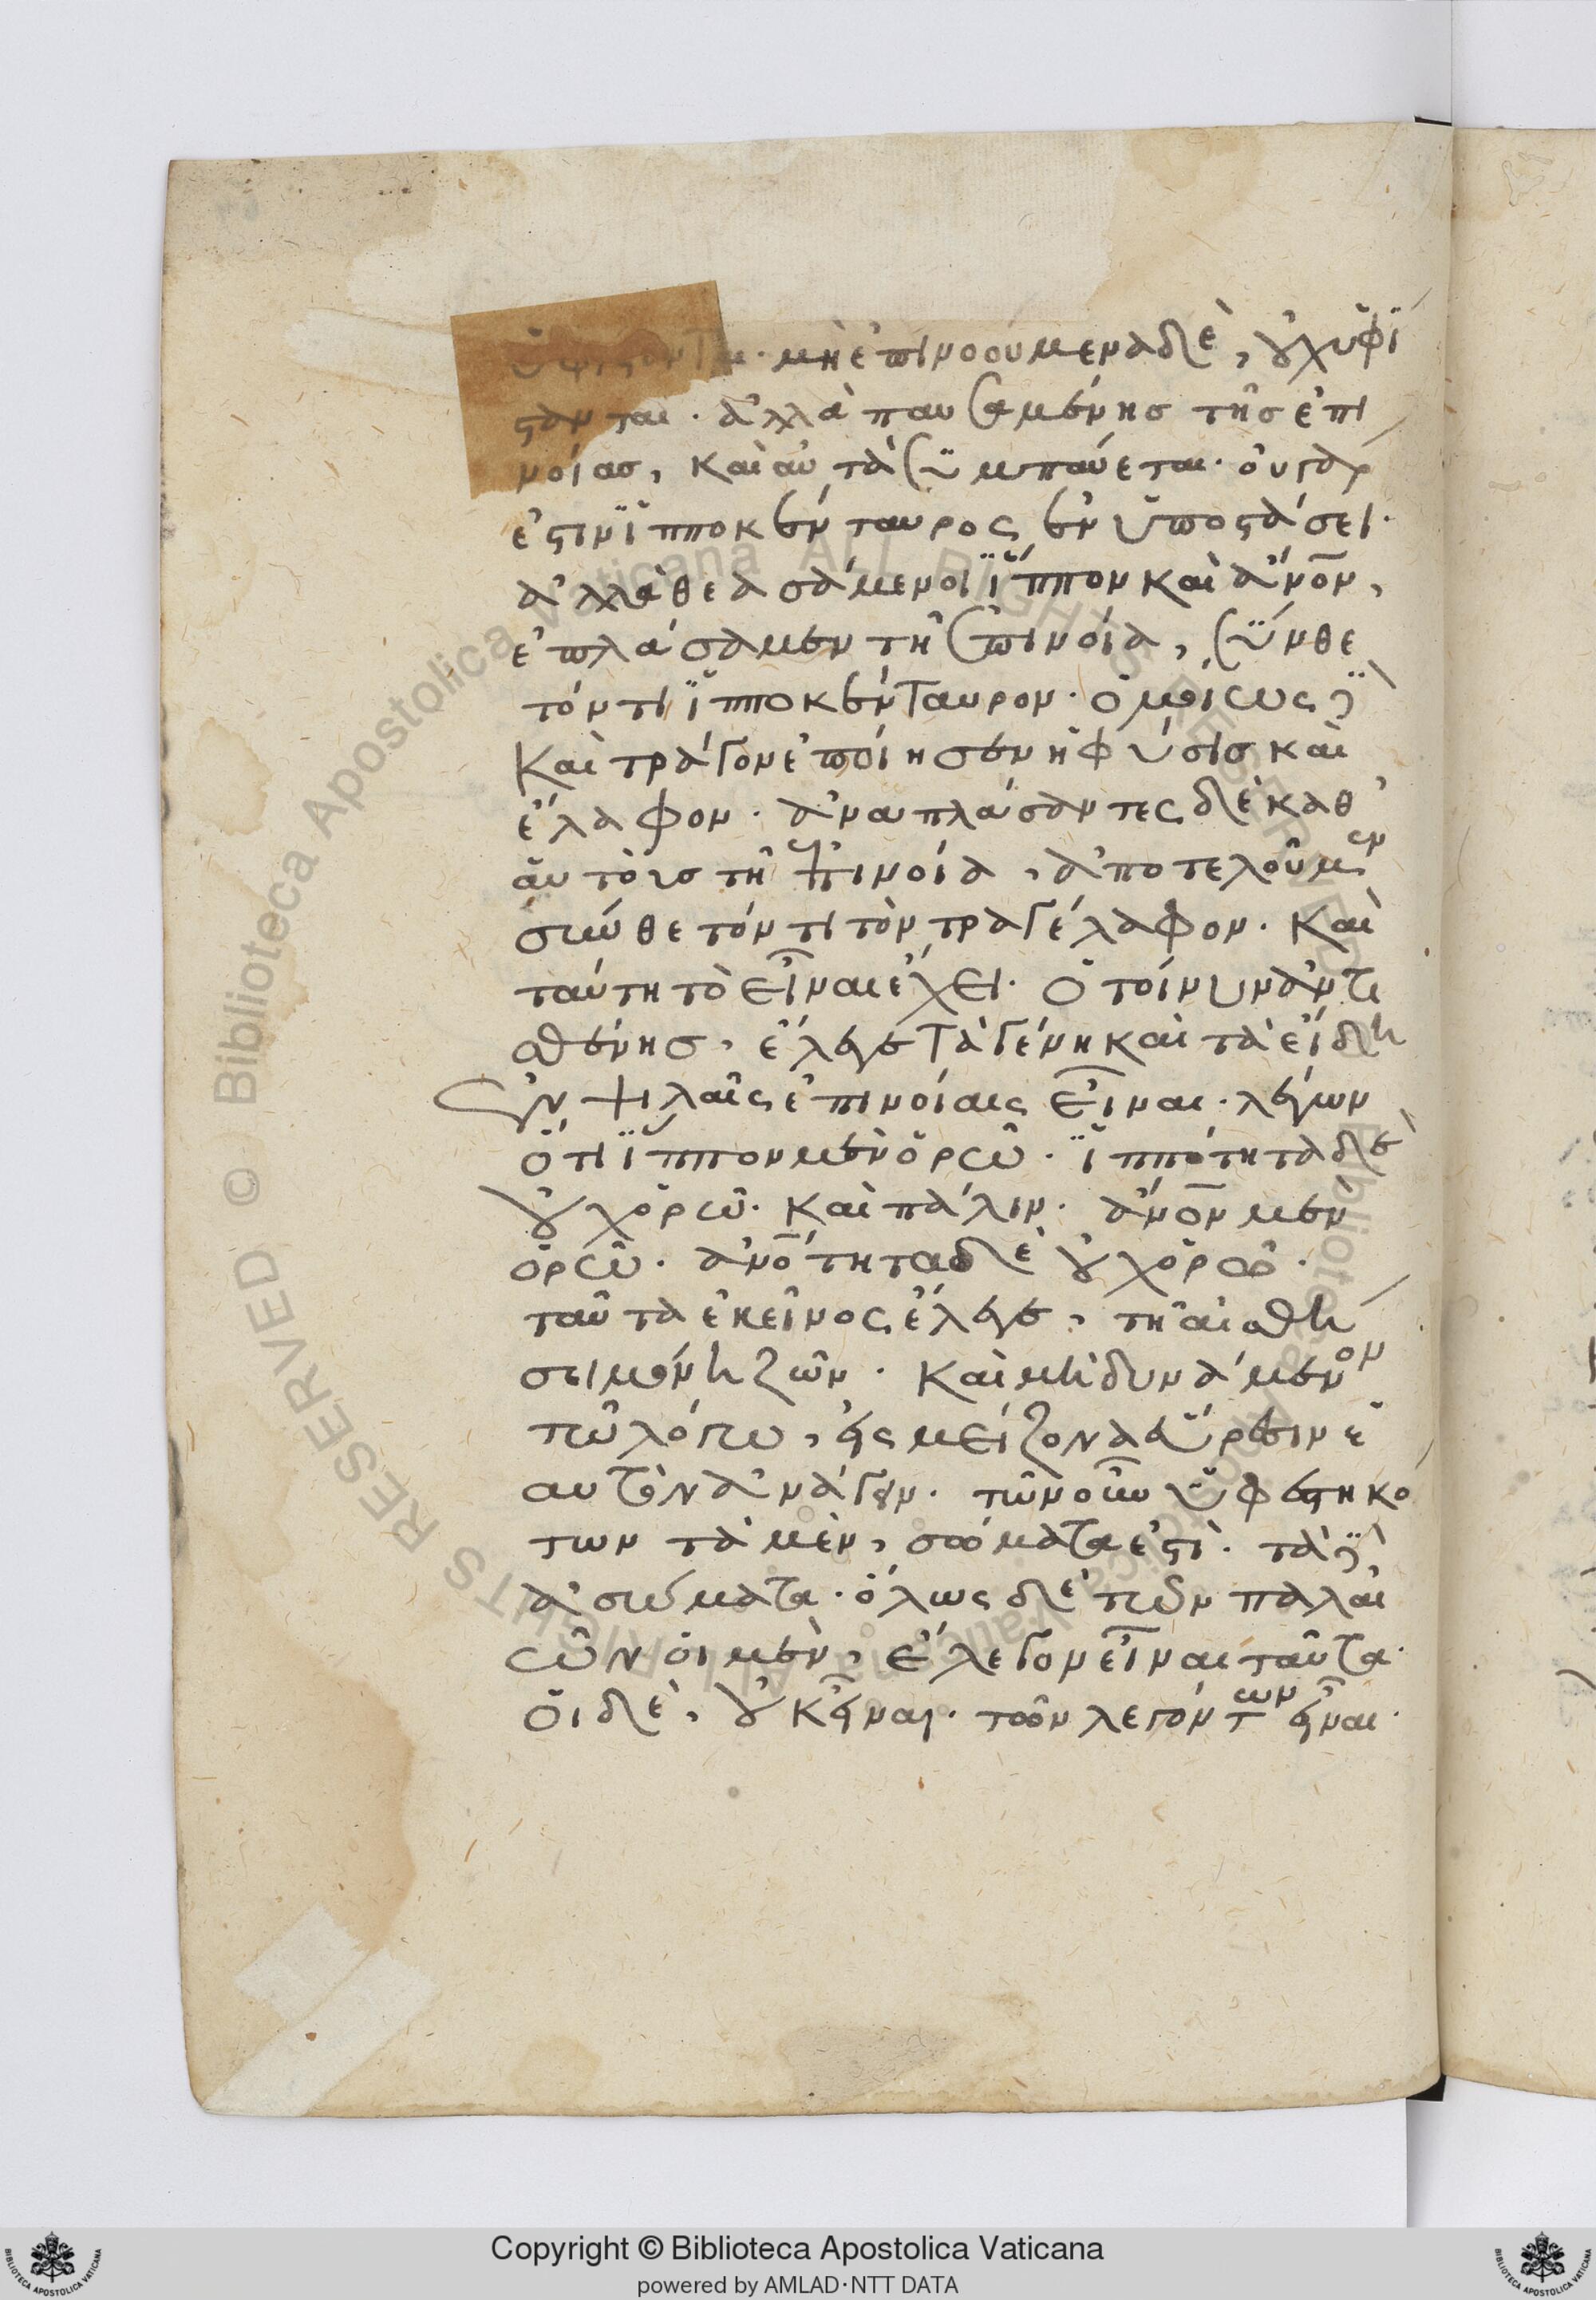 ὑφίστανται· μὴ ἐπινοούμενα δὲ, οὐχ ὑφί
στανται· ἀλλὰ παυσαμένης τῆς ἐπι
νοίας, καὶ αὐτὰ συμπαύεται· οὐ γὰρ
ἔστιν ἱπποκένταυρος ἐν ὑποστάσει·
ἀλλὰ θεασάμενοι ἵππον καὶ ἄνον,
ἐπλάσαμεν τῆ ἐπινοία, σύνθε
τόν τι ἱπποκένταυρον· ὁμοίως δὲ
καὶ τράγον ἐποίησεν ἡ φύσις καὶ
ἔλαφον· ἀναπλάσαντες δὲ καθ'
αὑτοὺς τῆ ἐπινοία, ἀποτελοῦμεν
σύνθετόν τι τὸν τραγέλαφον· καὶ
ταύτη τὸ εἶναι ἔχει· ὁ τοίνυν ἀντι
σθένης, ἔλεγε τὰ γένη καὶ τὰ εἴδη
ἐν ψιλαῖς ἐπινοίαις εἶναι· λέγων
ὅτι ἵππον μὲν ὁρῶ· ἱππότητα δὲ
οὐχ ὁρῶ· καὶ πάλιν· ἄνον μὲν
ὁρῶ· ἀνότητα δὲ οὐχ ὁρῶ·
ταῦτα ἐκεῖνος ἔλεγε, τῆ αἰσθή
σει μόνη ζῶν· καὶ μὴ δυνάμενον
τῶ λόγω, εἰς μείζονα εὕρεσιν ἑ
αυτὸν ἀνάγειν· τῶν οὖν ὑφεστηκό
των τὰ μὲν, σώματα ἐστὶ· τὰ δὲ
ἀσώματα· ὅλως δὲ τῶν παλαι
ῶν οἱ μὲν, ἔλεγον εἶναι ταῦτα·
οἱ δὲ, οὐκ εἶναι· τῶν λεγόντων εἶναι·
Copyright © Biblioteca Apostolica Vaticana
powered by AMLAD·NTT DATA
© Biblioteca Apostolica Vaticana ALL RIGHTS RESERVED